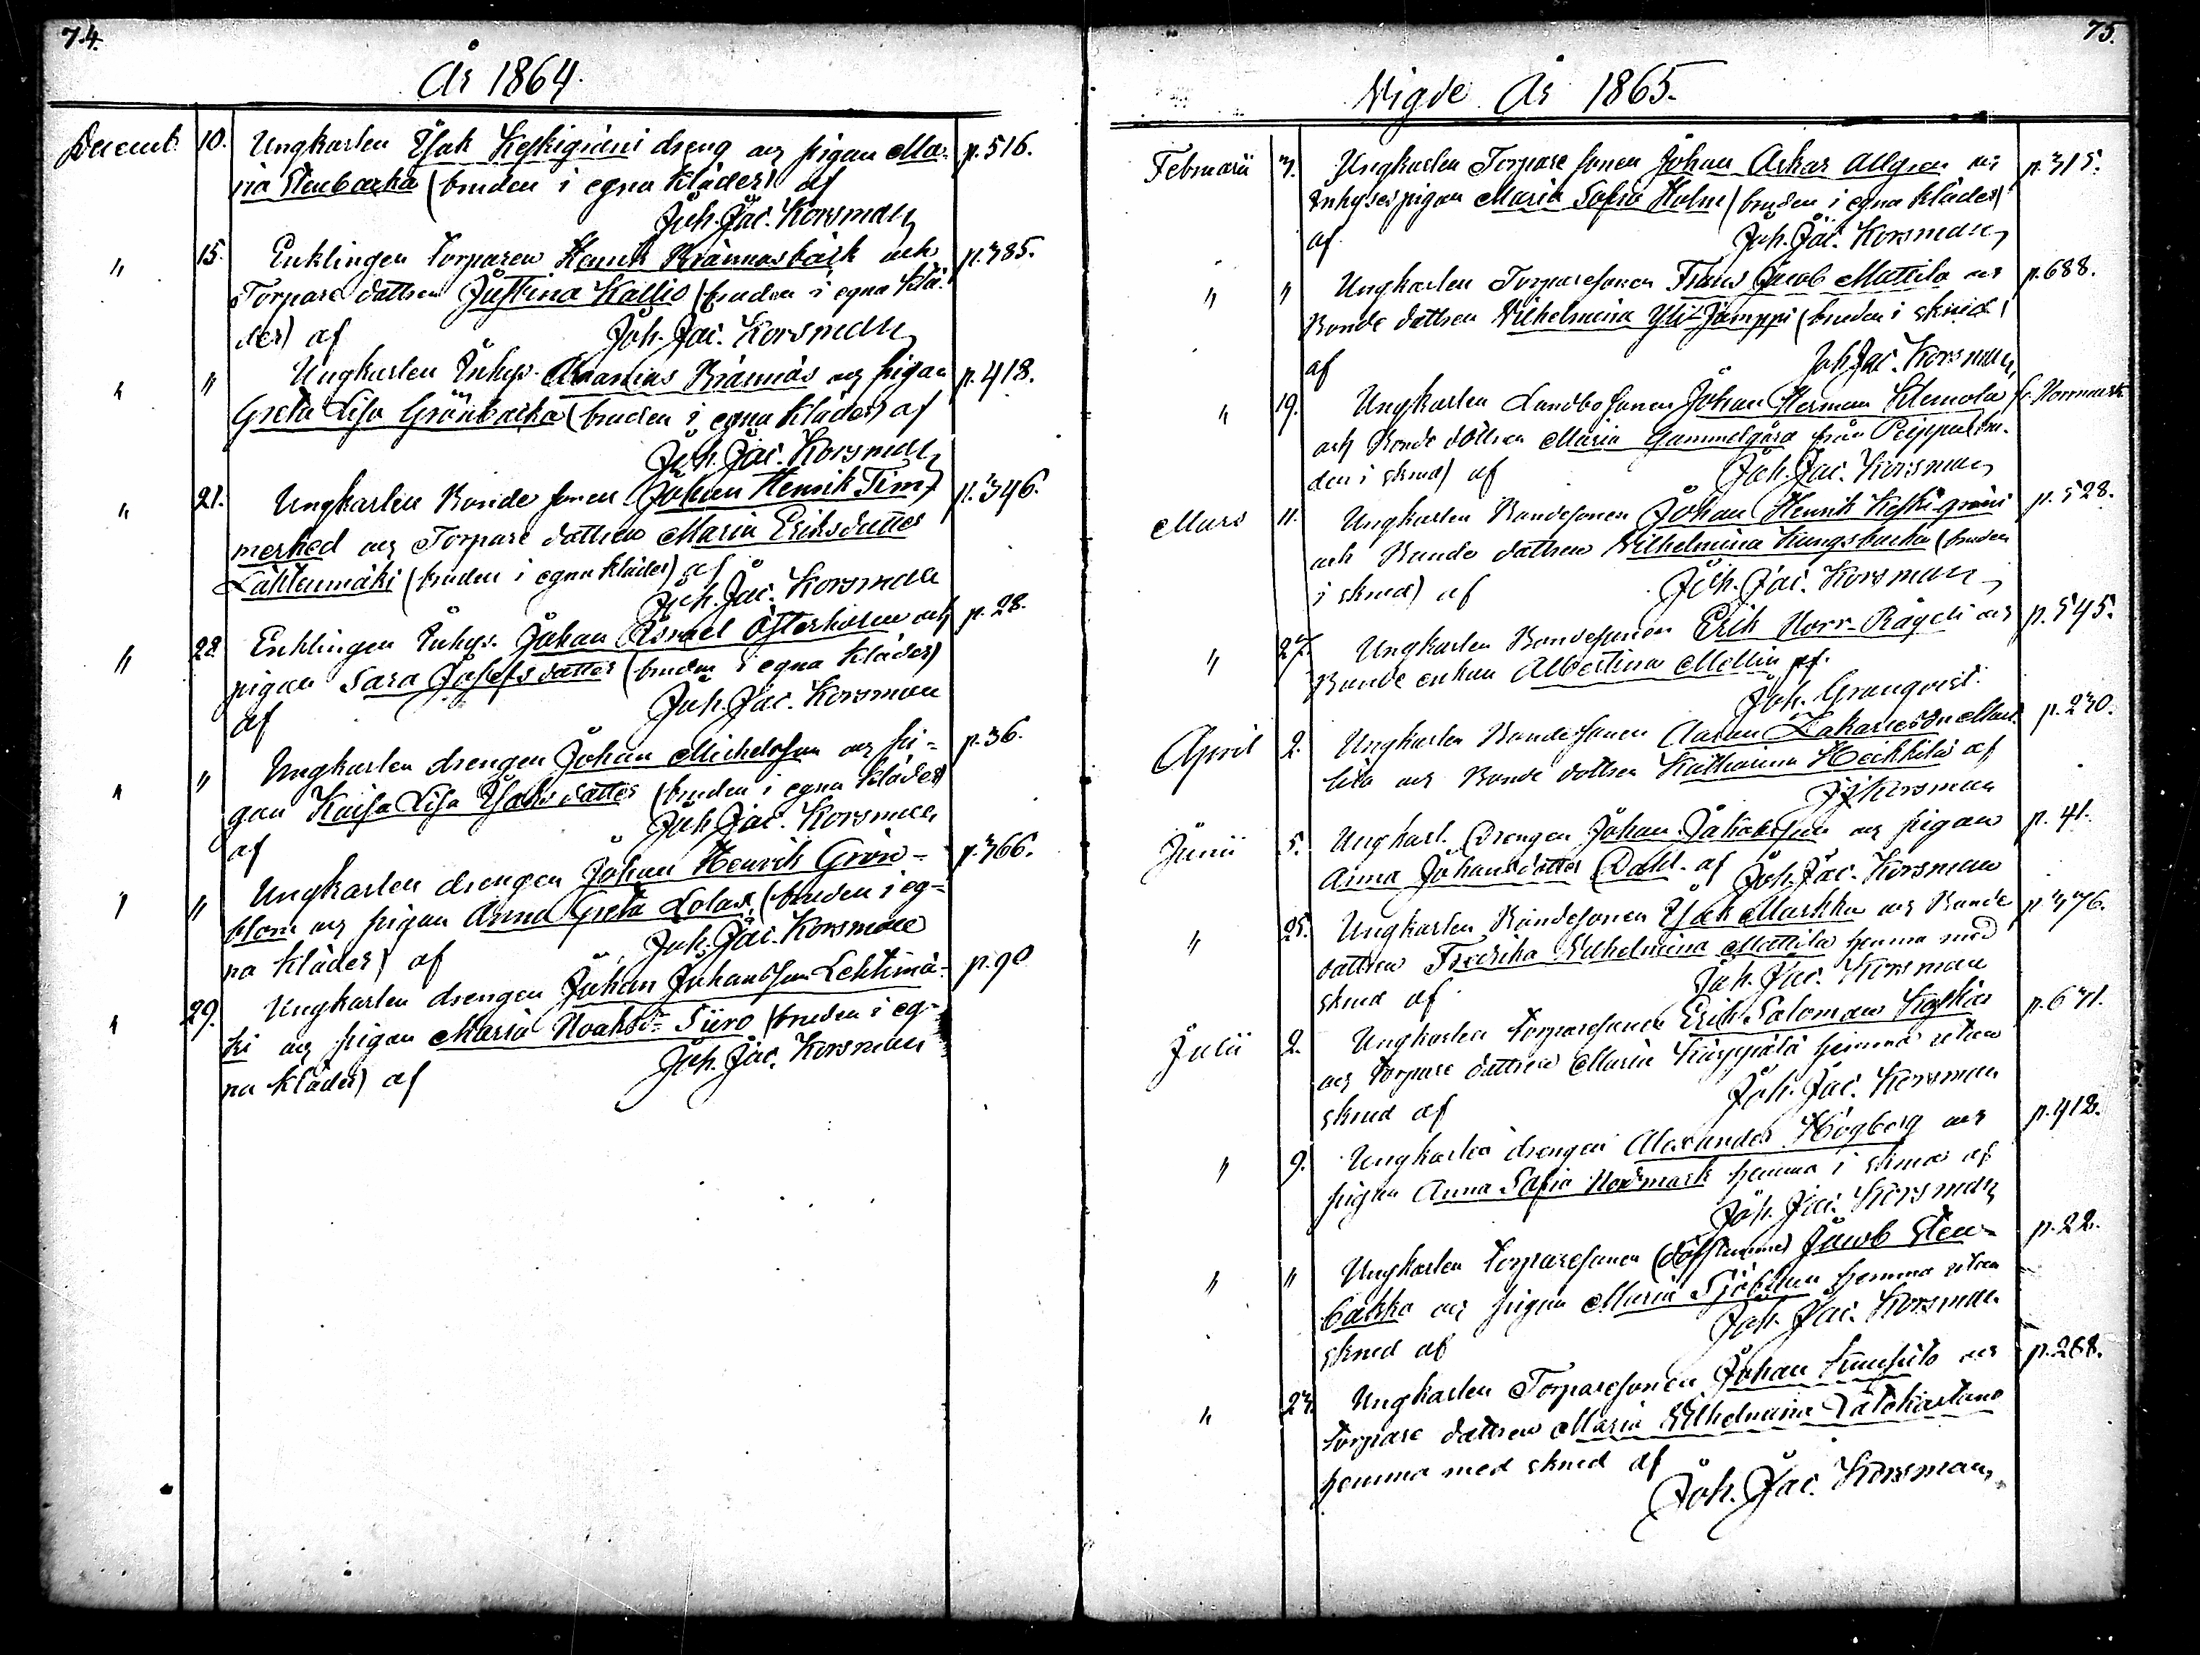 74.
År 1864.
Decemb. 10. Ungkarlen Isak Keskigrani dreng och pigan Ma- p. 516.
ria Stenbacka (bruden i egna kläder) af
Joh. Jac. Korsman
" 15. Enklingen Torparen Henrik Brännasback och p. 385.
Torpare dottren Justina Kallio (bruden i egna klä-
der) af Joh. Jac. Korsman
" " Ungkarlen Inhys. Ananias Brännäs och pigan p. 418.
Greta Lisa Grönbacka (bruden i egna kläder) af
Joh. Jac. Korsman
" 21. Ungkarlen Bonde sonen Johan Henrik Tim- p. 346.
merhed och Torpare dottren Maria Eriksdotter
Lähteenmäki (bruden i egna kläder) af
Joh. Jac. Korsman
" 28. Enklingen Inhys. Johan Israel Österholm och p. 28.
pigan Sara Josefsdotter (bruden i egna kläder)
af Joh. Jac. Korsman
" " Ungkarlen drengen Johan Michelsson och pi- p. 36.
gan Kaisa Lisa Isaksdotter (bruden i egna kläder)
af Joh. Jac. Korsman
" " Ungkarlen drengen Johan Henrik Grön- p. 366.
blom och pigan Anna Greta Lolax (bruden i eg-
na kläder) af Joh. Jac. Korsman
" 29. Ungkarlen drengen Johan Johansson Lehtimä- p. 90
ki och pigan Maria Noaksdr Siiro (bruden i eg-
na kläder) af Joh. Jac. Korsman
75.
Vigde År 1865.
Februarii 3. Ungkarlen Torpare sonen Johan Askar Allgren och p. 315.
Inhyses pigan Maria Sofia Holm (bruden i egna kläder)
af Joh. Jac. Korsman
" " Ungkarlen Torparesonen Frans Jacob Mattila och p. 688.
Bonde dottren Wilhelmina Yli-Jamppi (bruden i skrud)
af Joh. Jac. Korsman
" 19. Ungkarlen Landbo sonen Johan Herman Klemola fr. Norrmark
och Bonde dottren Maria Gammelgård från Peippu (bru-
den i skrud) af Joh. Jac. Korsman
Mars 11. Ungkarlen Bondesonen Johan Henrik Keskigrani p. 528.
och Bonde dottren Wilhelmina Kungsbacka (bruden
i skrud) af Joh. Jac. Korsman
" 27. Ungkarlen Bondesonen Erik Norr-Rågeli och p. 545.
Bonde enkan Albertina Mellin af
Joh. Granqvist.
April 2. Ungkarlen Bondesonen Aaron Zakariesdr p. 230.
och Bonde dottren Katharina Heikkilä af
JJKorsman
Junii 5. Ungkarl. Drengen Johan Jakobsson och pigan p. 41.
Anna Johansdotter Dahl. af Joh. Jac. Korsman
" 25. Ungkarlen Bondesonen Isak Markku och Bonde p. 376.
dottren Fredrika Wilhelmina Mattila hemma med
skrud af Joh. Jac. Korsman
Julii 2. Ungkarlen Torparesonen Erik Salomon p. 631.
och Torpare dottren Maria hemma utan
skrud af Joh. Jac. Korsman
" 9. Ungkarlen drengen Alexander Högberg och p. 412.
pigan Anna Sofia Nordmark hemma i skrud af
Joh. Jac. Korsman
" " Ungkarlen Torparesonen (döfstumme) Jacob Sten- p. 22.
backa och pigan Maria hemma utan
skrud af Joh. Jac. Korsman
" 23. Ungkarlen Torparesonen Johan och p. 268.
Torpare dottren Maria Wilhelmina
hemma med skrud af
Joh. Jac. Korsman